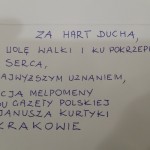 ZA HART DUCHA,
WOLĘ WALKI I KU POKRZEPI
SERCA,
AJWYŻSZYM UZNANIEM,
CJA MELPOMENY
DU GAZETY POLSKIEJ
JANUSZA KURTYKI
KRAKOWIE